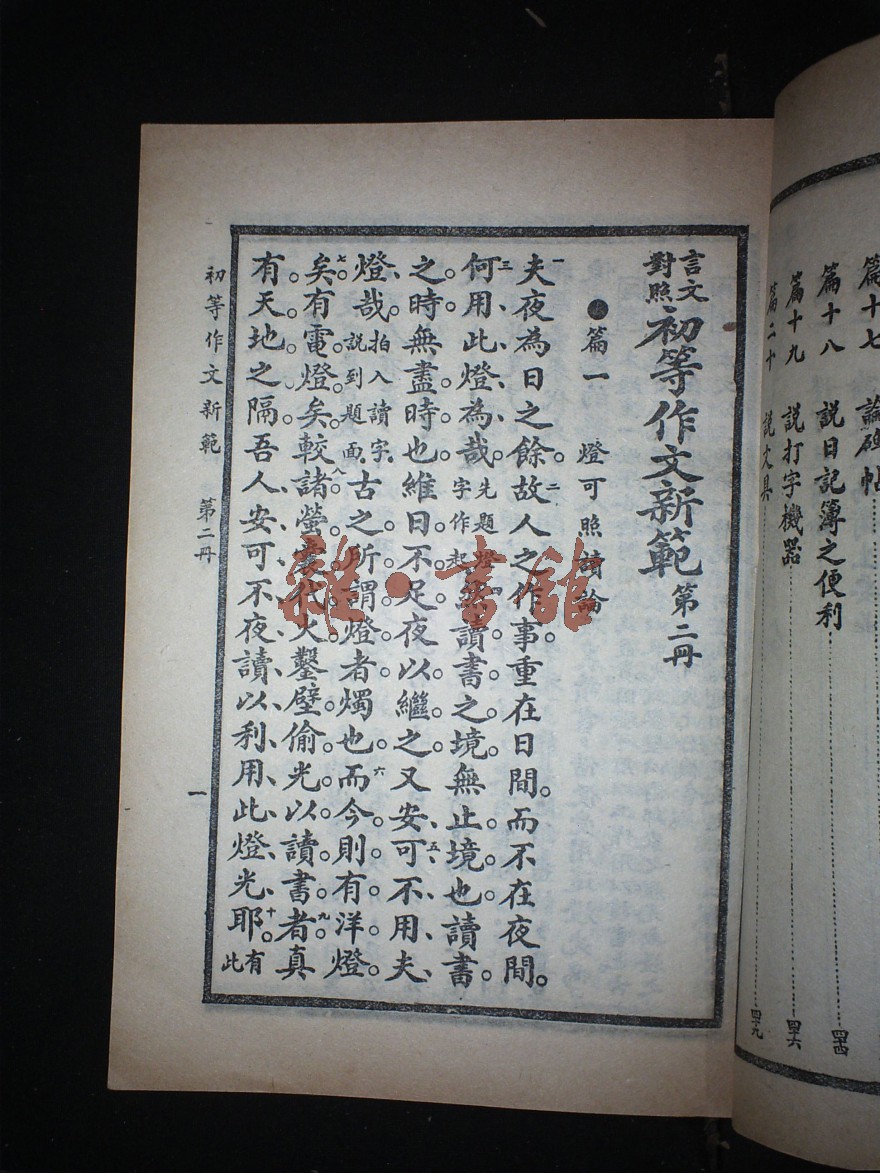 篇十七 論碑帖
篇十八 説日記簿之便利 四四
篇十九 説打字機器 四六
篇二十 説文具 四九
言文對照 初等作文新範 第二冊
●篇一 燈可照讀論
一夫夜為日之餘。二故人之作事。重在日間。而不在夜間。
三何用此燈為哉。先題燈字作起 讀書之境無止境也。讀書
之時無盡時也。維日不足。夜以繼之。五又安可不用夫
燈哉。拍入讀字説到題面 古之所謂燈者燭也。六而今則有洋燈。
七矣。有電燈矣。八較諸螢囊代火。鑿壁偷光。以讀書者。九真
有天地之隔。吾人安可不夜讀以利用此燈光耶。十有此
初等作文新範 第二冊
一
雜·書館